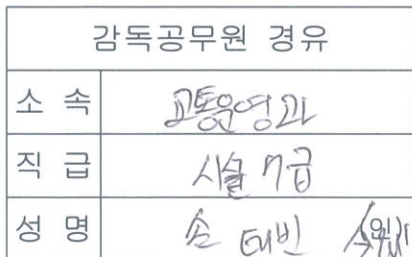 감독공무원 경유
소 속 교통운영과
직 급 시설 7급
성 명 손 태빈